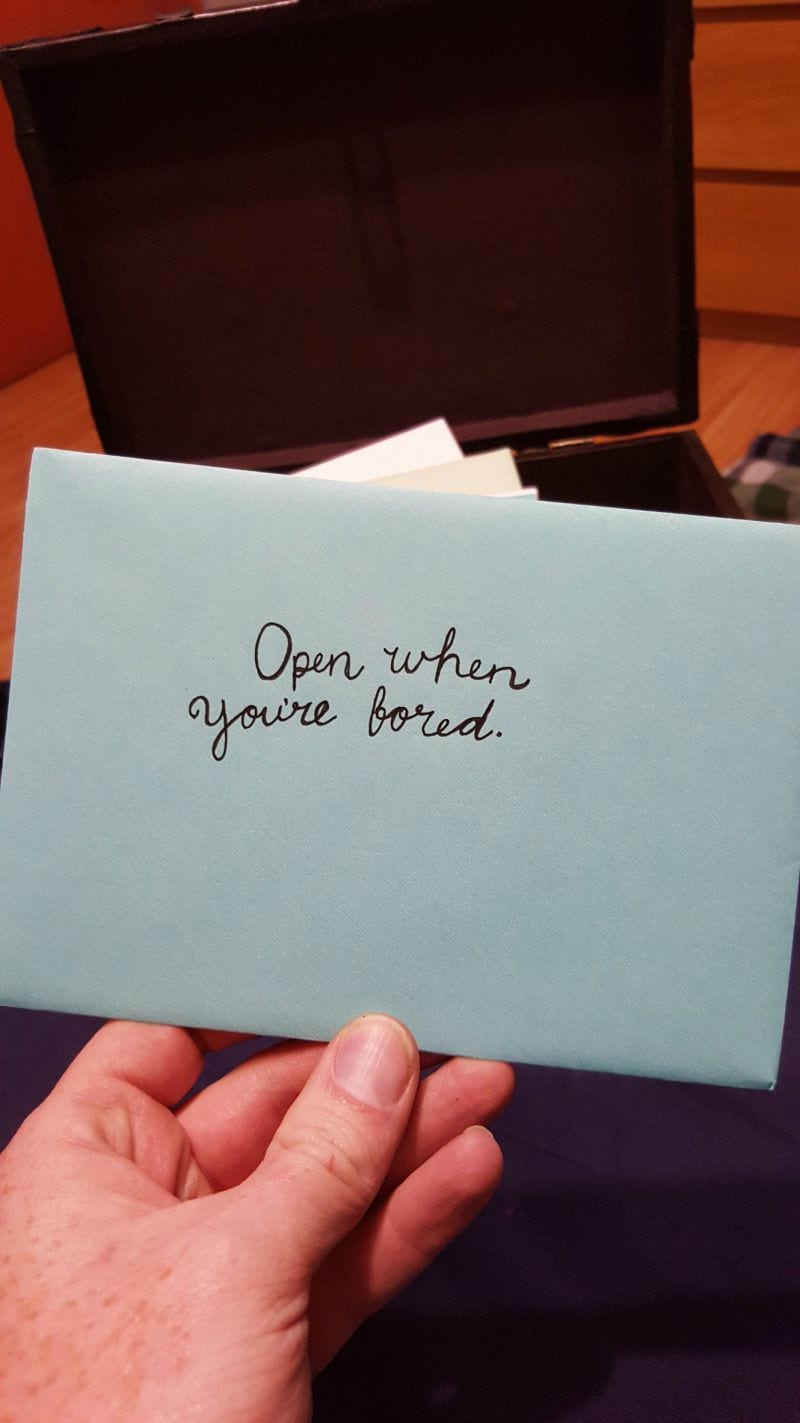 Open when
you're bored.